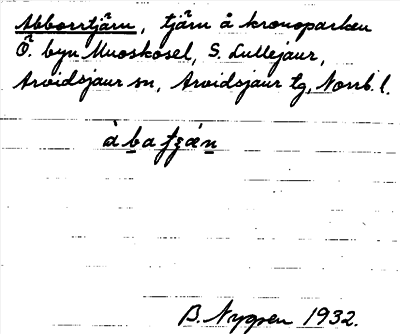 Abborrtjärn, tjärn å kronoparken
Ö. byn Muoskosel, S. Lullejaur,
Arvidsjaur sn, Arvidsjaur tg, Norrb. l.
B. Nygren 1932.